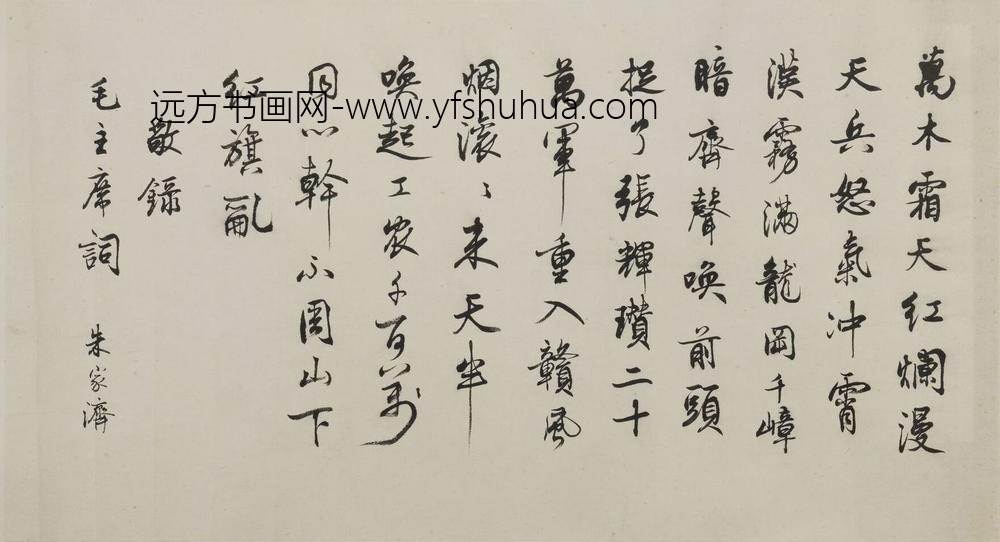 萬木霜天紅爛漫
天兵怒氣冲霄
漢霧滿龍岡千嶂
暗齊聲喚前頭
捉了張輝瓚二十
萬軍重入贛風
烟滚〻来天半
喚起工农千百万
同心幹不周山下
紅旗亂
敬錄
毛主席詞 朱家濟
远方书画网-www.yfshuhua.com